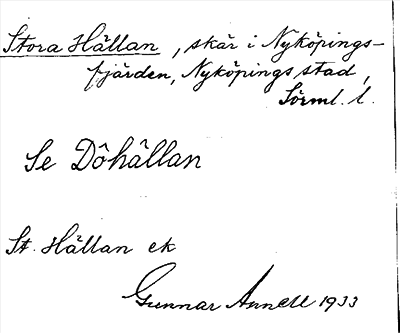 Stora Hällan, skär i Nyköpings-
fjärden, Nyköpings stad,
Sörml. l.
Se Döhällan
St. Hällan ek
Gunnar Annell 1933